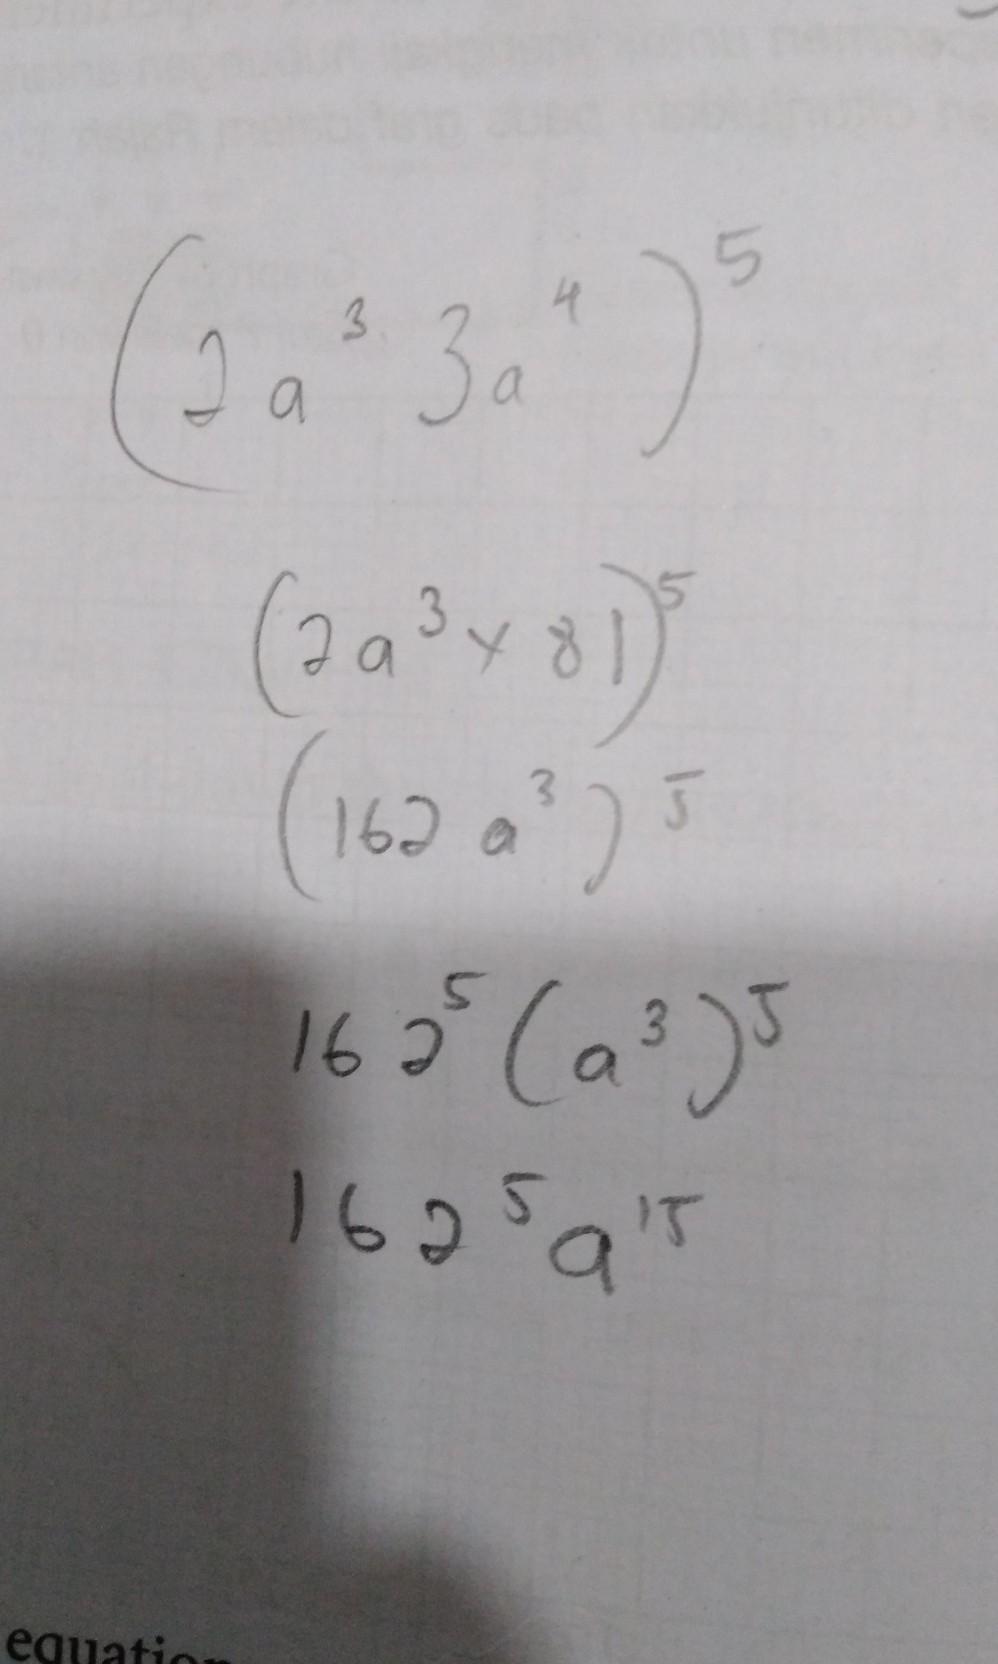 (2a³ 3a⁴)⁵
(2a³ × 81)⁵
(162 a³)⁵
162⁵ (a³)⁵
162⁵ a¹⁵
equation